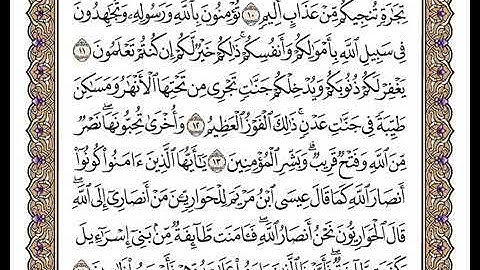 تِجَٰرَةٖ تُنجِيكُم مِّنۡ عَذَابٍ أَلِيمٖ ١٠ تُؤۡمِنُونَ بِٱللَّهِ وَرَسُولِهِۦ وَتُجَٰهِدُونَ
فِي سَبِيلِ ٱللَّهِ بِأَمۡوَٰلِكُمۡ وَأَنفُسِكُمۡۚ ذَٰلِكُمۡ خَيۡرٞ لَّكُمۡ إِن كُنتُمۡ تَعۡلَمُونَ ١١
يَغۡفِرۡ لَكُمۡ ذُنُوبَكُمۡ وَيُدۡخِلۡكُمۡ جَنَّٰتٖ تَجۡرِي مِن تَحۡتِهَا ٱلۡأَنۡهَٰرُ وَمَسَٰكِنَ
طَيِّبَةٗ فِي جَنَّٰتِ عَدۡنٖۚ ذَٰلِكَ ٱلۡفَوۡزُ ٱلۡعَظِيمُ ١٢ وَأُخۡرَىٰ تُحِبُّونَهَاۖ نَصۡرٞ
مِّنَ ٱللَّهِ وَفَتۡحٞ قَرِيبٞۗ وَبَشِّرِ ٱلۡمُؤۡمِنِينَ ١٣ يَٰٓأَيُّهَا ٱلَّذِينَ ءَامَنُواْ كُونُوٓاْ
أَنصَارَ ٱللَّهِ كَمَا قَالَ عِيسَى ٱبۡنُ مَرۡيَمَ لِلۡحَوَارِيِّـۧنَ مَنۡ أَنصَارِيٓ إِلَى ٱللَّهِۖ
قَالَ ٱلۡحَوَارِيُّونَ نَحۡنُ أَنصَارُ ٱللَّهِۖ فَـَٔامَنَت طَّآئِفَةٞ مِّنۢ بَنِيٓ إِسۡرَٰٓءِيلَ